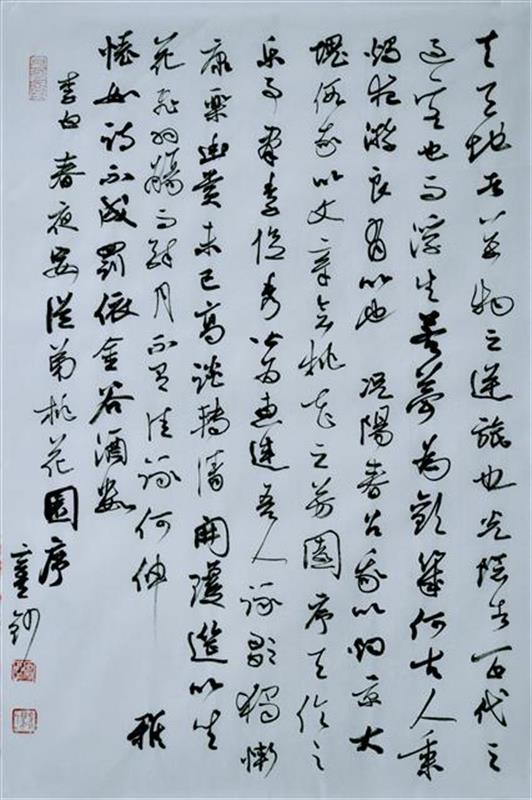 夫天地者万物之逆旅也光陰者百代之
过客也而浮生若夢為歡幾何古人秉
燭夜游良有以也况陽春召我以烟景大
塊假我以文章会桃花之芳園序天伦之
乐事群季俊秀皆为惠連吾人詠歌獨慚
康樂幽賞未已高談轉清開瓊筵以坐
花飛羽觴而醉月不有佳詠何伸雅
懷如詩不成罰依金谷酒數
李白春夜宴從弟桃花園序